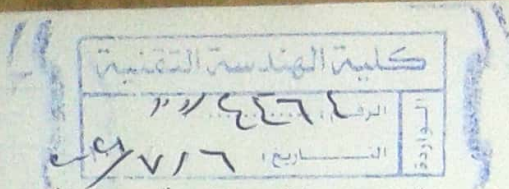 كلية الهندسة التقنية
الواردة
الرقم: ٤٤٦٤
التاريخ: ٧/٦